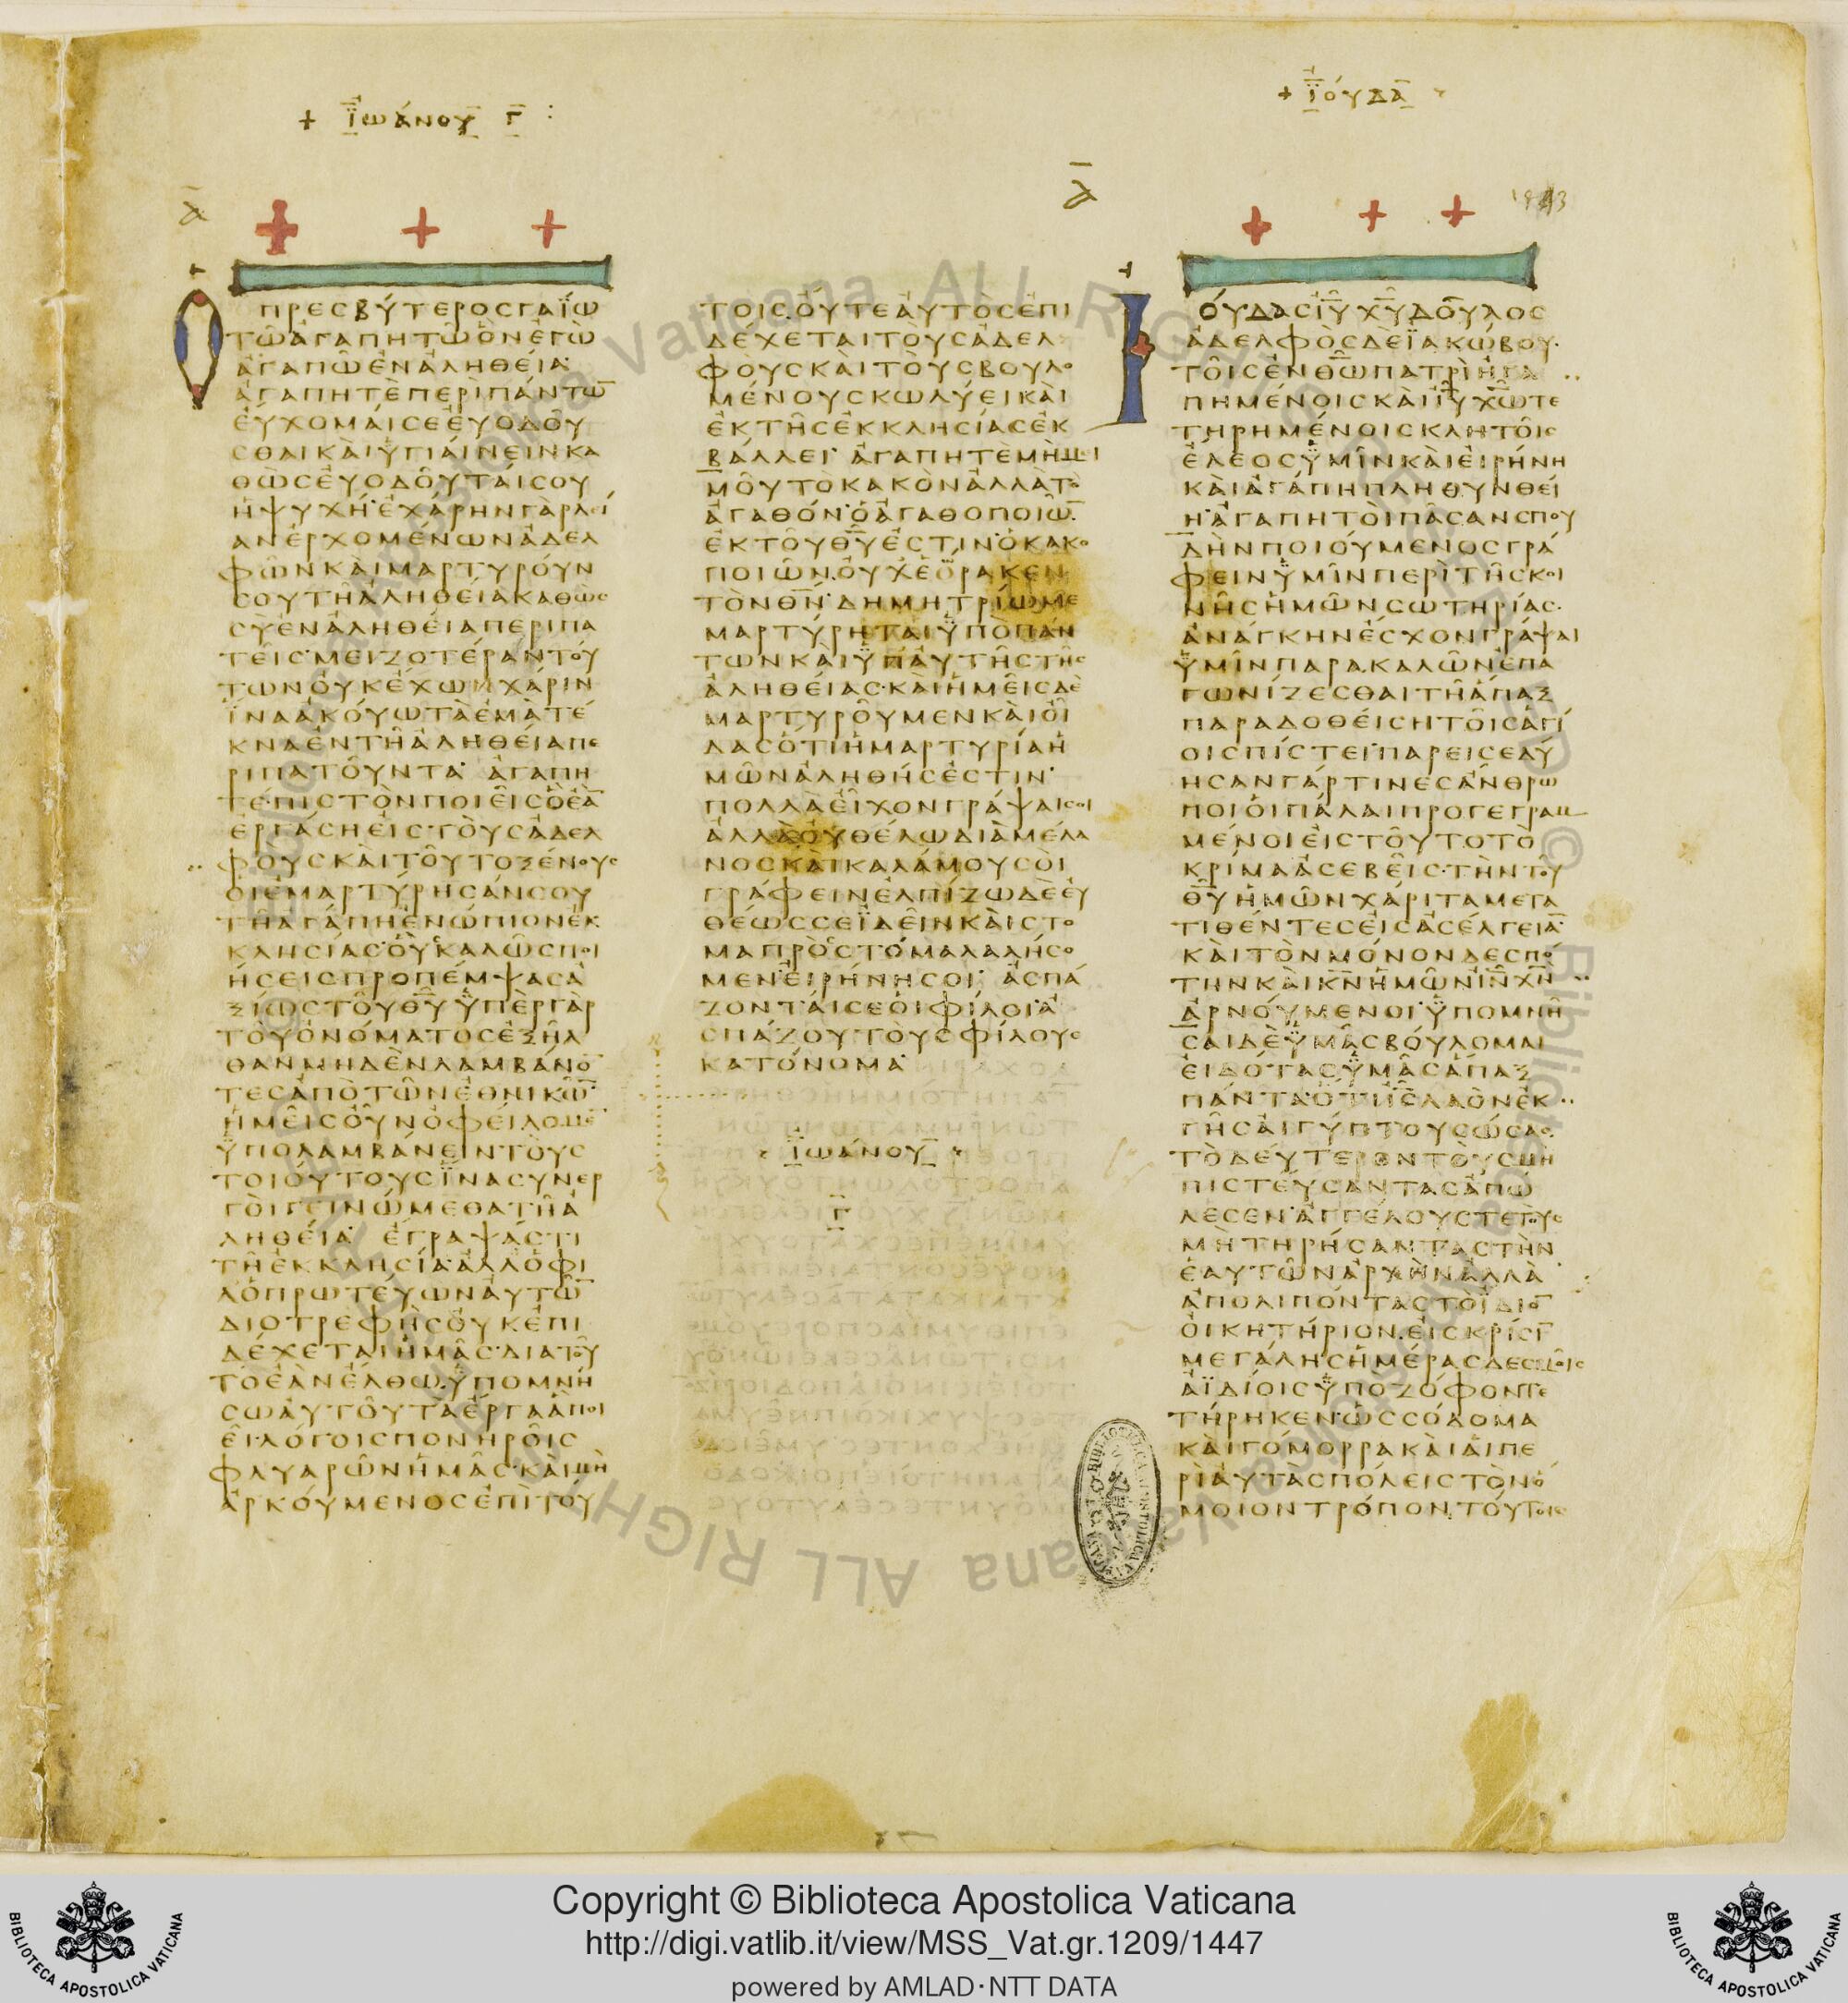 + ϊωάνου γ :
+ ϊούδα
1443
ᾱ
ᾱ
πρεσβύτεροσγαΐω
τῶἀγαπητῶὃνἐγὼ
ἀγαπῶἐνἀληθείᾳ·
ἀγαπητὲπερὶπάντω̅
ἐύχομαίσεἐυοδοῦ
σθαικαὶὑγιαίνεινκα
θὼσἐυοδοῦταίσου
ἡψυχή·ἐχάρηνγὰρλεί
ανἐρχομένωνἀδελ
φῶνκαὶμαρτυρούν
σουτῆἀληθείακαθὼσ
σὺἐνἀληθείαπεριπα
τεῖσ·μειζοτέραντού
τωνὀυκἔχωχάριν
ἵναἀκούωτὰἐμὰτέ
κναἐντῆἀληθείαπε
ριπατοῦντα· ἀγαπη
τέπιστὸνποιεῖσὃἐὰ̅
ἐργάσηἐισ·τοὺσἀδελ
φοὺσκαὶτοῦτοξένουσ
ὁιἐμαρτύρησάνσου
τῆἀγάπηἐνώπιονἐκ
κλησίασ·ὃὺσκαλῶσποι
ήσεισπροπέμψασἀ
ξίωστοῦθ̅υ̅ὑπὲργὰρ
τοὺὀνόματοσἐξῆλ
θανμηδὲνλαμβάνο̅
τεσἀπὸτῶνἐθνικῶ̅·
ἡμεῖσὀῦνὀφείλομε̅
ὑπολαμβάνειντοὺσ
τοιούτουσἵνασυνερ
γοὶγινώμεθατῆἀ
ληθεία· ἔγραψάστι
τῆἐκκλησία·ἀλλὁφι
λοπρωτεύωνἀυτῶ̅
διοτρεφὴσὀυκἐπι
δέχεταιἡμᾶσ·διατοῦ
τοἐὰνἔλθω·ὑπομνή
σωἀυτοῦτὰἔργαἃποι
εῖ·λόγοισπονηροῖσ
φλυαρῶνἡμᾶσ·καὶμὴ
ἀρκούμενοσἐπὶτού
τοισ·ὄυτεἀυτὸσἐπι
δέχεταιτοὺσἀδελ
φοὺσκαὶτοὺσβουλο
μένουσκωλύεικαὶ
ἐκτῆσἐκκλησίασἐκ
βάλλει· ἀγαπητὲμὴμι
μοῦτοκακὸνἀλλὰτὸ
ἀγαθόν·ὁἀγαθοποιῶ̅
ἐκτοῦθ̅υ̅ἐστιν·ὁκακο
ποιῶν·ὀυχἑόρακεν
τὸνθ̅ν̅·δημητρίωμε
μαρτύρηταιὑπὸπάν
τωνκαὶὑπἀυτῆστῆσ
ἀληθείασ·καὶἡμεῖσδὲ
μαρτυροῦμενκαὶὀῖ
δασὅτιἡμαρτυρίαἡ
μῶνἀληθήσἐστιν·
πολλὰἐῖχονγράψαισοι
ἀλλὰὀυθέλωδιὰμέλα
νοσκαὶκαλάμουσοὶ
γράφεινἐλπίζωδὲἐυ
θέωσσεϊδεῖνκαὶστο
μαπρὸσστόμαλαλήσο
μεν·ἐιρήνησοι· ἀσπά
ζονταίσεὁιφίλοι·ἀ
σπάζουτοὺσφίλουσ
κατόνομα·
ϊωάνου
γ̅
ούδασι̅υ̅χ̅υ̅δοῦλοσ
ἀδελφὸσδὲϊακώβου·
τοῖσἐνθ̅ω̅πατρὶἠγα
πημένοισκαὶι̅υ̅χ̅ω̅τε
τηρημένοισκλητοῖσ
ἔλεοσὑμῖνκαὶἐιρήνη
καὶἀγάπηπληθυνθεί
η·ἀγαπητοὶπᾶσανσπου
δὴνποιούμενοσγρά
φεινὑμῖνπερὶτῆσκοι
νῆσἡμῶνσωτηρίασ·
ἀνάγκηνἔσχονγράψαι
ὑμῖνπαρακαλῶνἐπα
γωνίζεσθαιτῆἅπαξ
παραδοθείσητοῖσἁγί
οισπίστει·παρεισεδύ
ησανγάρτινεσἄνθρω
ποιὁιπάλαιπρογεγραμ
μένοιἐιστοῦτοτὸ
κρίμαἀσεβεῖσ·τὴντοῦ
θ̅υ̅ἡμῶνχάριταμετα
τιθέντεσἐισἀσέλγεια̅
καὶτὸνμόνονδεσπό
τηνκαὶκ̅ν̅ἡμῶνι̅ν̅χ̅ν̅
ἀρνούμενοι·ὑπομνῆ
σαιδὲὑμᾶσβούλομαι
ἐιδότασὑμᾶσἅπαξ
πάντα·ὅτιι̅σ̅λαὸνἐκ
γῆσἀιγύπτουσώσασ
τὸδεύτεροντοὺσμὴ
πιστεύσαντασἀπώ
λεσεν·ἀγγέλουστετοὺσ
μὴτηρήσαντασ·τὴν
ἑαυτῶνἀρχὴνἀλλὰ
ἀπολιπόντασ·τὸἴδιο̅
ὀικητήριον·ἐισκρίσι̅
μεγάλησἡμέρασδεσμοῖσ
ἀϊδίοισὑποζόφοντε
τήρηκεν·ὡσσόδομα
καὶγόμορρακαὶἁιπε
ρὶἀυτὰσπόλεισ·τὸνὅ
μοιοντρόποντούτοισ
Copyright © Biblioteca Apostolica Vaticana
http://digi.vatlib.it/view/MSS_Vat.gr.1209/1447
powered by AMLAD·NTT DATA
BIBLIOTECA APOSTOLICA VATICANA
BIBLIOTECA APOSTOLICA VATICANA